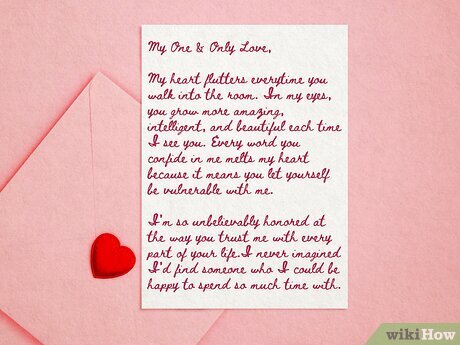 My One & Only Love,
My heart flutters everytime you
walk into the room. In my eyes,
you grow more amazing,
intelligent, and beautiful each time
I see you. Every word you
confide in me melts my heart
because it means you let yourself
be vulnerable with me.
I'm so unbelievably honored at
the way you trust me with every
part of your life.I never imagined
I'd find someone who I could be
happy to spend so much time with.
wikiHow